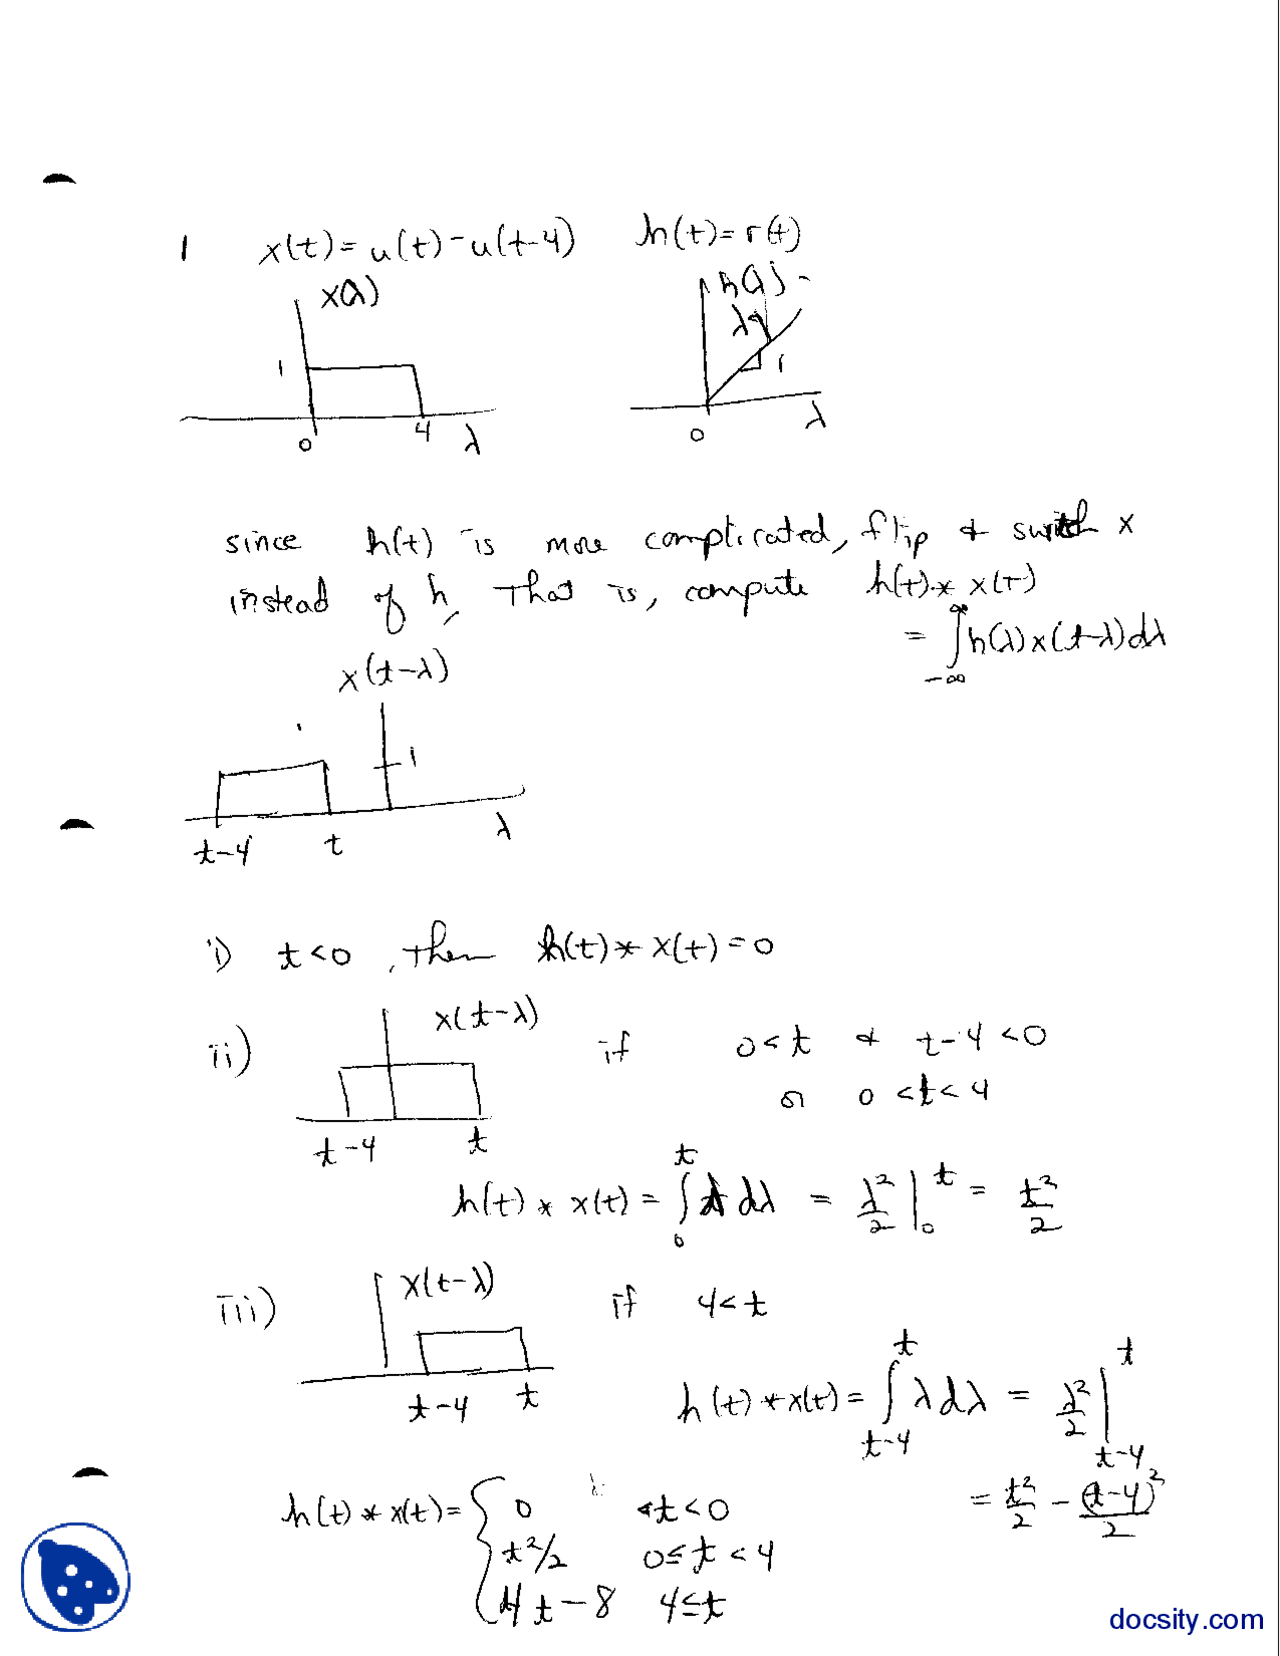 1 x(t) = u(t) - u(t-4) h(t) = r(t)
x(λ) h(λ)
λ
1 1
0 4 λ 0 λ
since h(t) is more complicated, flip & switch x
instead of h. That is, compute h(t) * x(t)
= ∫_{-∞}^{∞} h(λ) x(t-λ) dλ
x(t-λ)
1
t-4 t λ
i) t < 0, then h(t) * x(t) = 0
ii) x(t-λ) if 0 < t & t-4 < 0
or 0 < t < 4
t-4 t
h(t) * x(t) = ∫_0^t λ dλ = λ²/2 |_0^t = t²/2
iii) x(t-λ) if 4 < t
t-4 t
h(t) * x(t) = ∫_{t-4}^t λ dλ = λ²/2 |_{t-4}^t
= t²/2 - (t-4)²/2
h(t) * x(t) = { 0 t < 0
t²/2 0 ≤ t < 4
4t - 8 4 ≤ t
docsity.com